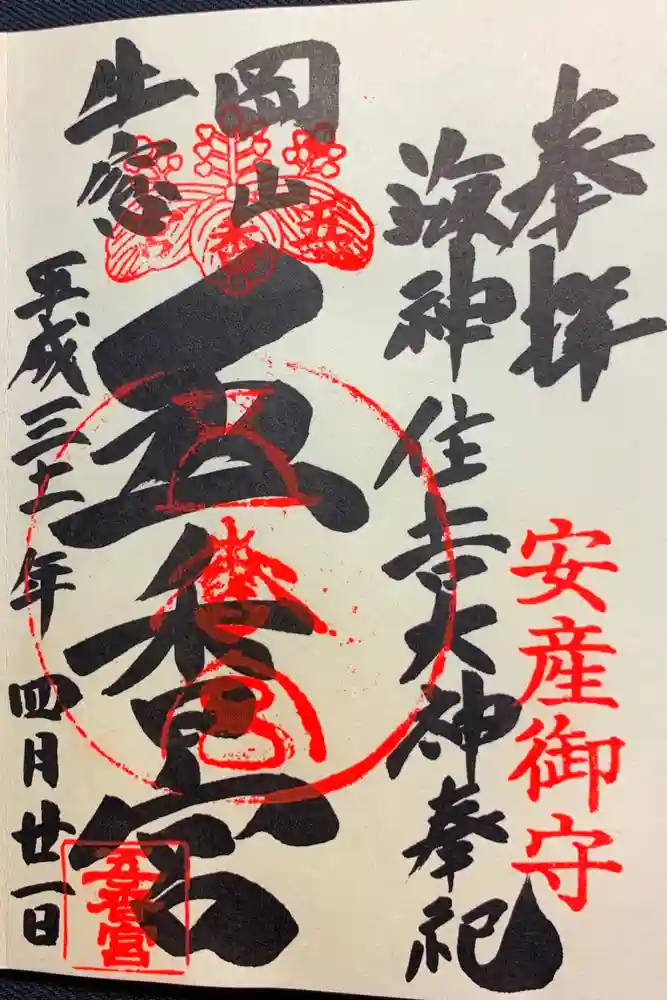 奉拝
安産御守
海神住吉大神奉祀
岡山
五香宮
五香宮
牛窓
平成三十一年四月廿一日
五香宮